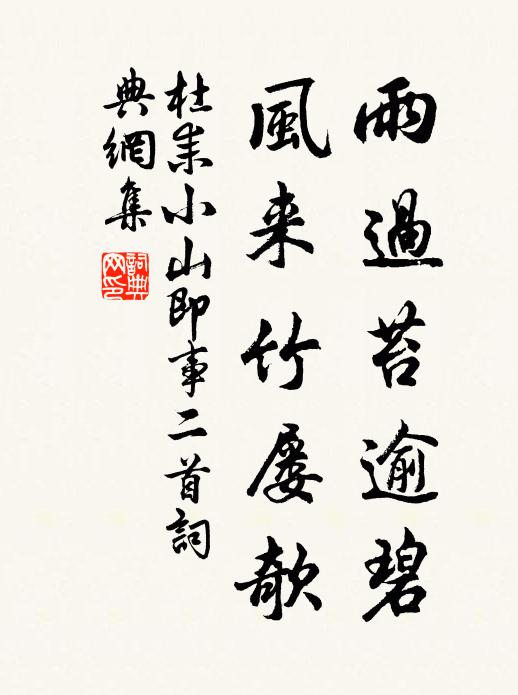 雨過苔逾碧
風来竹屢欹
杜耒小山即事二首詞
典網集
詞典
网印